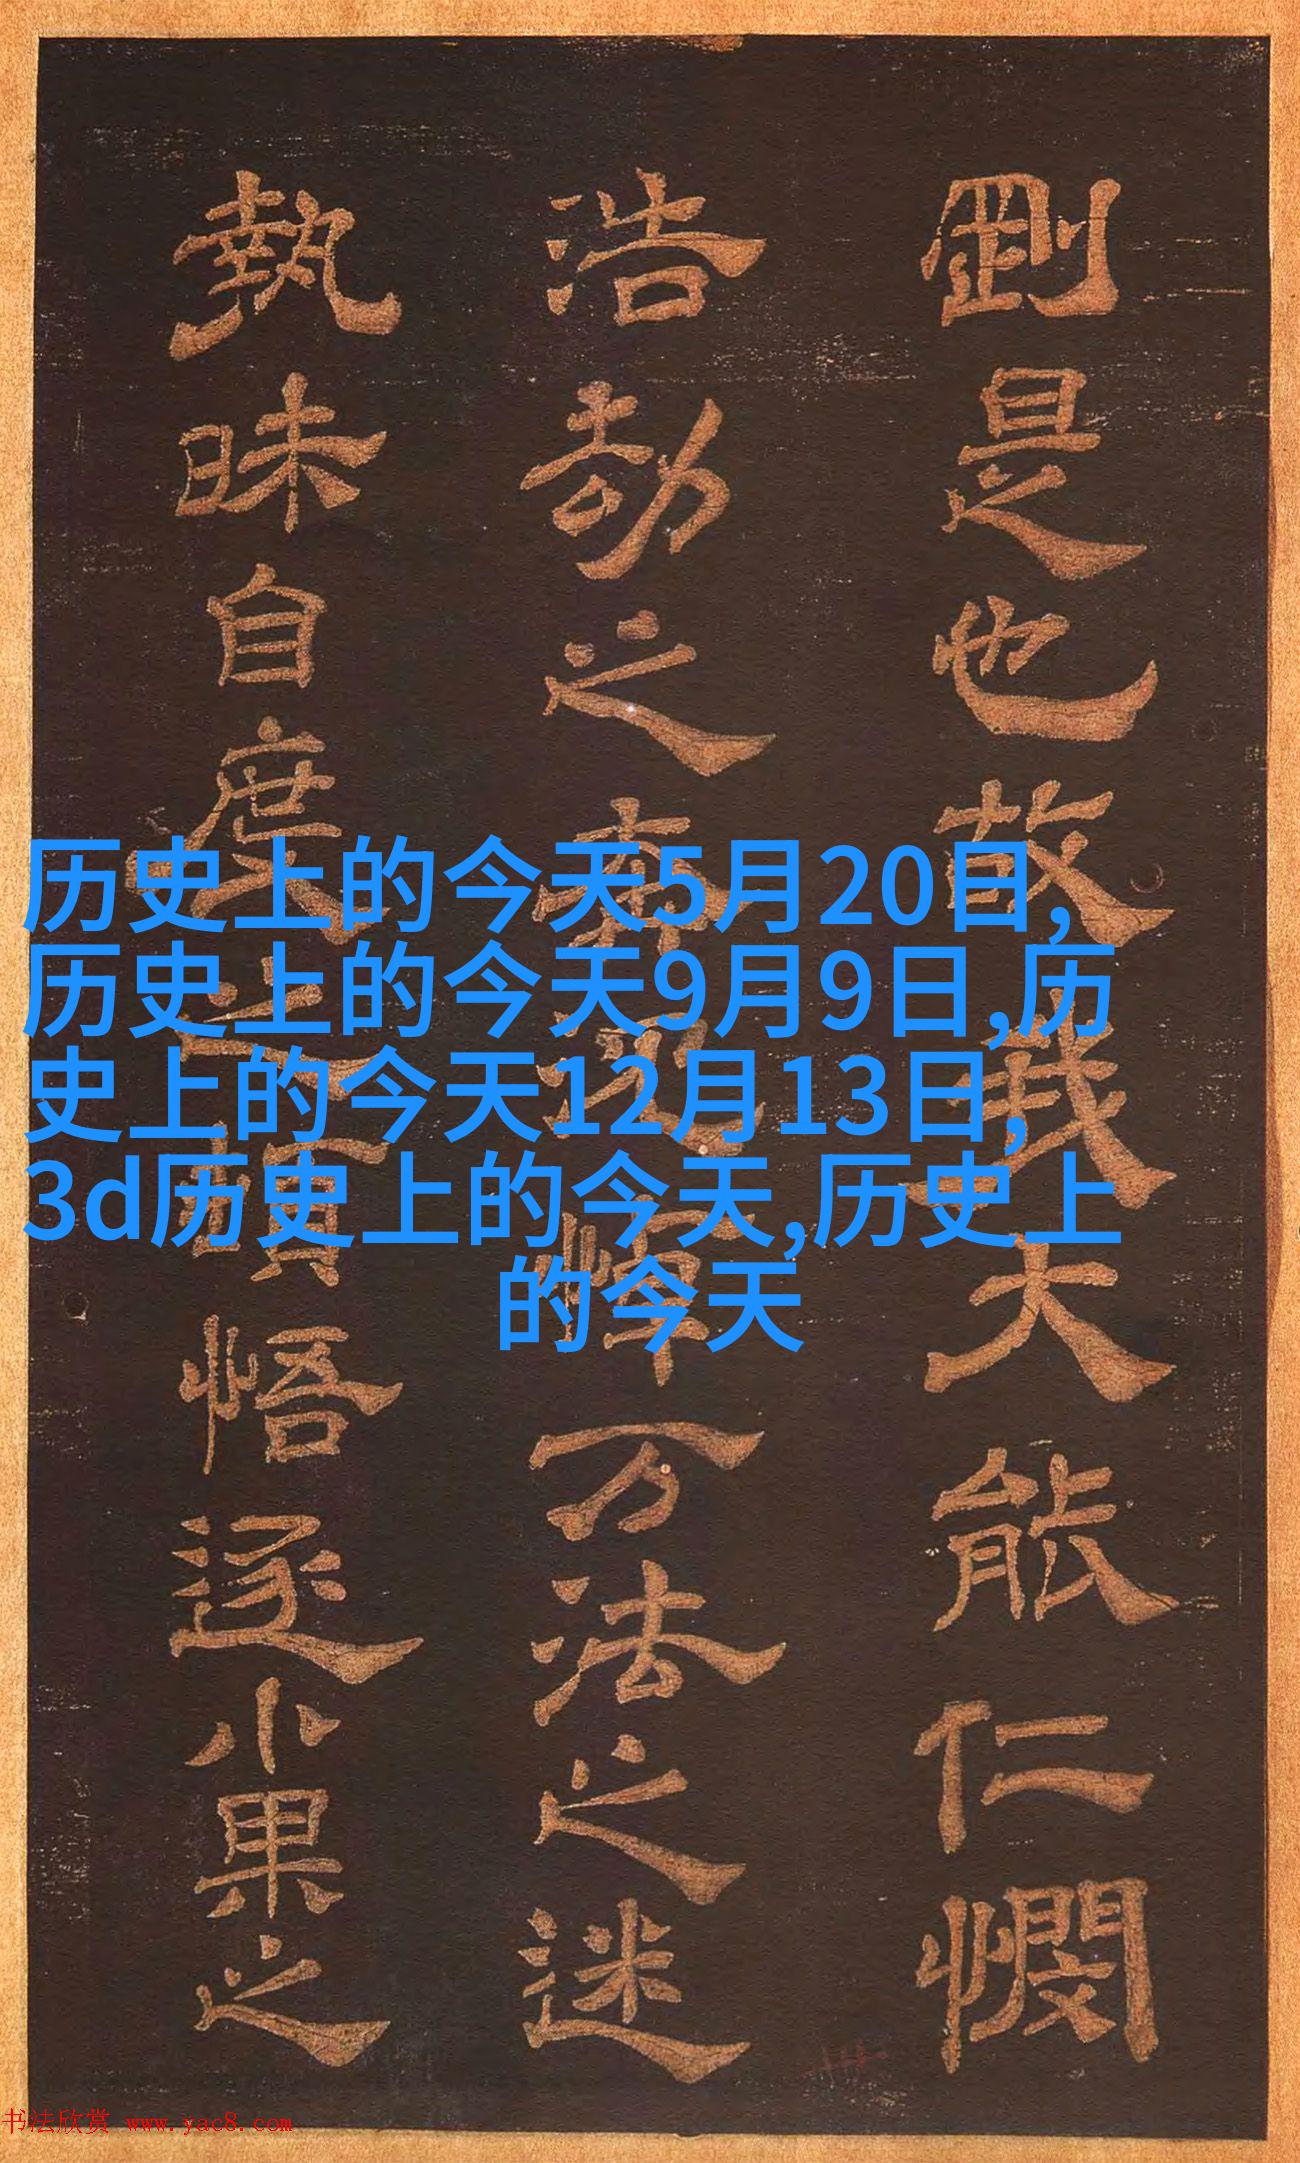 剛是也故我大能仁憫
浩劫之
万法之迷
執昧自度之
悟遂小果之
历史上的今天5月20日,
历史上的今天9月9日,历
史上的今天12月13日,
3d历史上的今天,历史上
的今天
书法欣赏 www.yac8.com